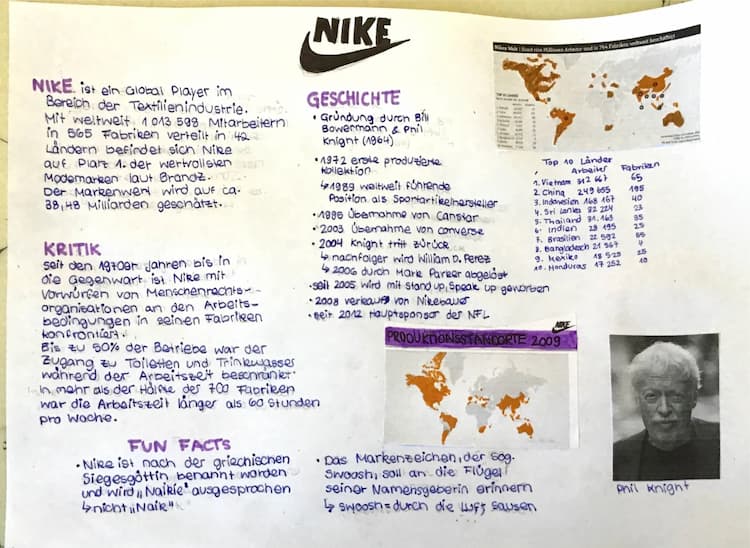 NIKE
NIKE ist ein Global Player im
Bereich der Textilienindustrie.
Mit weltweit 1 013 598 Mitarbeitern
in 565 Fabriken verteilt in 42
Ländern befindet sich Nike
auf Platz 1. der wertvollsten
Modemarken laut Brandz.
Der Markenwert wird auf ca.
38,48 Milliarden geschätzt.
KRITIK
Seit den 1970er Jahren bis in
die Gegenwart ist Nike mit
Vorwürfen von Menschenrechts-
organisationen an den Arbeits-
bedingungen in seinen Fabriken
konfrontiert.
Bis zu 50% der Betriebe war der
Zugang zu Toiletten und Trinkwasser
während der Arbeitszeit beschränkt.
In mehr als der Hälfte der 700 Fabriken
war die Arbeitszeit länger als 60 Stunden
pro Woche.
GESCHICHTE
• Gründung durch Bill
Bowermann & Phil
Knight (1964)
• 1972 erste produzierte
Kollektion
↳ 1989 weltweit führende
Position als Sportartikelhersteller
• 1995 Übernahme von Canstar
• 2003 Übernahme von Converse
• 2004 Knight tritt zurück
↳ nachfolger wird William D. Perez
↳ 2006 durch Mark Parker abgelöst
• seit 2005 wird mit Stand up, Speak up geworben
• 2008 verkauf von Nikebauer
• seit 2012 Hauptsponsor der NFL
Nikes Welt | Rund eine Millionen Arbeiter sind in 744 Fabriken weltweit beschäftigt
Top 10 Länder
Arbeiter Fabriken
1. Vietnam 312 667 65
2. China 249 655 195
3. Indonesien 168 167 40
4. Sri Lanka 32 224 23
5. Thailand 31 163 35
6. Indien 28 195 25
7. Brasilien 22 592 65
8. Bangladesch 21 567 4
9. Mexiko 18 525 25
10. Honduras 17 252 10
NIKE
PRODUKTIONSSTANDORTE 2009
Phil Knight
FUN FACTS
• Nike ist nach der griechischen
Siegesgöttin benannt worden
und wird „Naikie" ausgesprochen
↳ nicht „Naik"
• Das Markenzeichen, der sog.
Swoosh, soll an die Flügel
seiner Namensgeberin erinnern
↳ swoosh = durch die Luft sausen